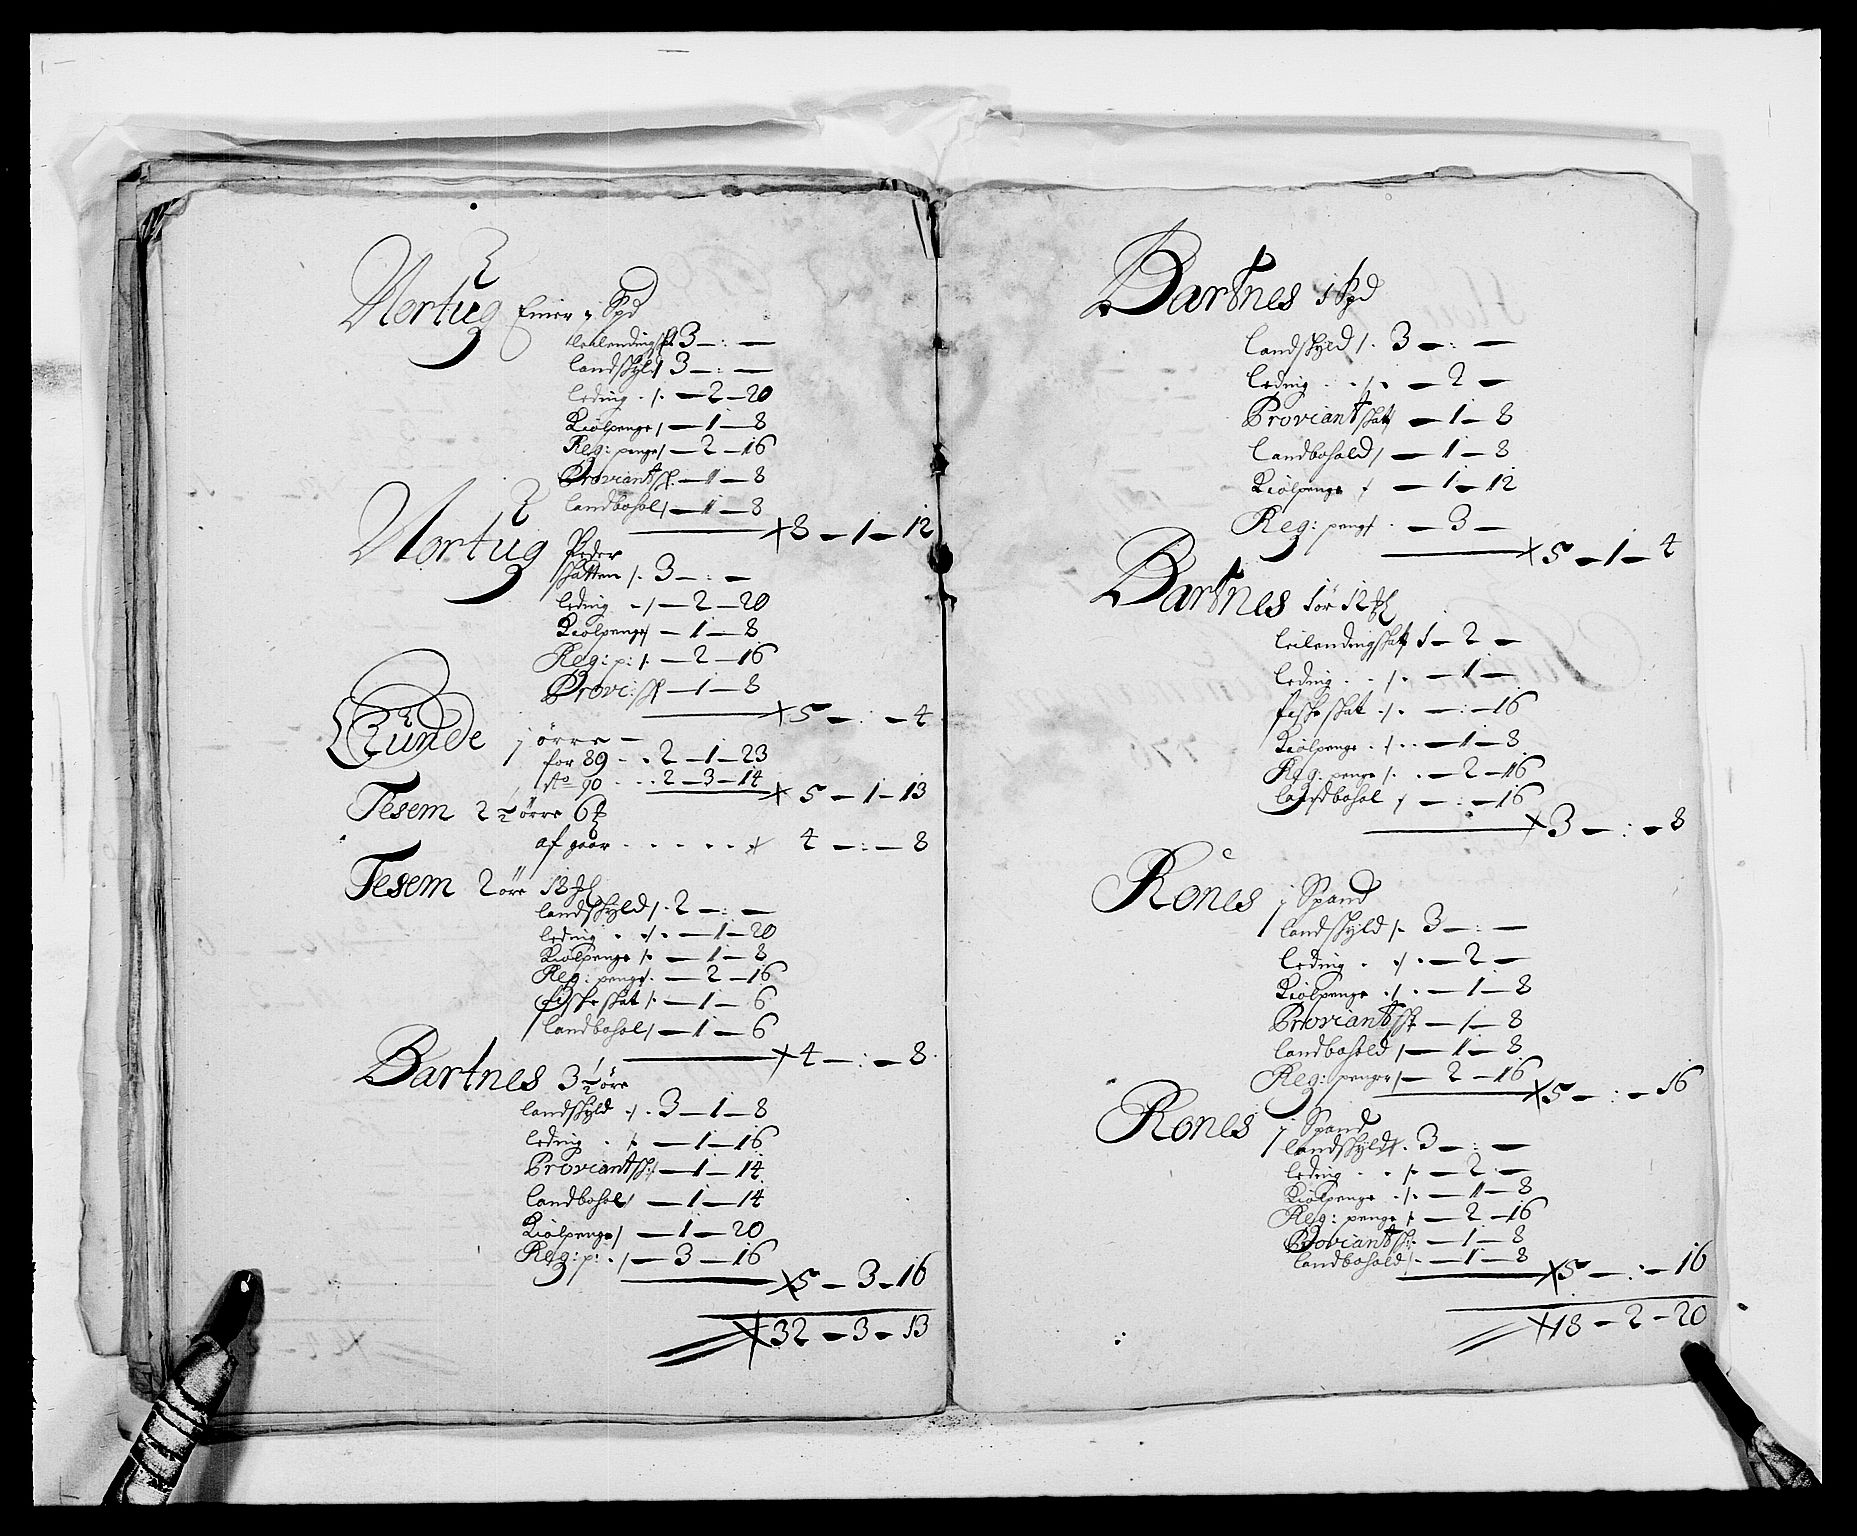 Nortug Einer j Spd
leilendings sk 3 — : —
landskyld 3 — : —
leding ./. — 2 — 20
Kiølpenge / — 1 — 8
Reg: penge / — 2 — 16
Proviant sk: — 1 — 8
landbohol / — 1 — 8
8 — 1 — 12
Nortug Peder
skatten /. 3 — : —
leding ./. — 2 — 20
Kiølpenge / — 1 — 8
Reg: p: /. — 2 — 16
Provi: sk — 1 — 8
5 — : — 4
Runde j ørre —
for 89 . . 2 — 1 — 23
Ao 90 . . . 2 — 3 — 14
5 — 1 — 13
Tesem 2 ½ ørre 6
af gaar . . . . . . 4 — : — 8
Tesem 2 øre 12
landskyld /. 2 — : —
leding . ./. — 1 — 20
Kiølpenge /. — 1 — 8
Reg: penge /. — 2 — 16
fiske skat /. — 1 — 6
landbohol / — 1 — 6
4 — : — 8
Bartnes 3 ½ øre
landskyld ./. 3 — 1 — 8
leding . /. — 1 — 16
Proviant sk: — 1 — 14
landbohol / — 1 — 14
Kiølpenge / — 1 — 20
Reg: p: ./ — 3 — 16
5 — 3 — 16
32 — 3 — 13
Bartnes 1 Spd
landskyld /. 3 — : —
leding . ./. — 2 —
Proviant skatt — 1 — 8
landbohold / — 1 — 8
Kiølpenge / — 1 — 12
Reg: penge /. — 3 —
5 — 1 — 4
Bartnes 1 ør 12
leilending skatt 1 — 2 —
leding . . /. — 1 —
fiske skat ./. — : — 16
Kiølpenge ./. . — 1 — 8
Reg: penge /. . — 2 — 16
landbohol / — : — 16
3 — : — 8
Rones j Spand
landskyld /. 3 — : —
leding . ./. — 2 —
Kiølpenge ./. — 1 — 8
Proviant sk — 1 — 8
landbohold / — 1 — 8
Reg: penge / — 2 — 16
5 — : — 16
Rones j Spand
landskyld /. 3 — : —
leding . . /. — 2 —
Kiølpenge ./. — 1 — 8
Reg: penge /. — 2 — 16
Proviant sk — 1 — 8
landbohold /. — 1 — 8
5 — : — 16
18 — 2 — 20